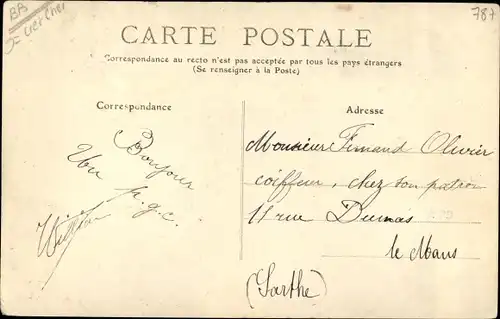 BB
787
CARTE POSTALE
Correspondance au recto n'est pas acceptée par tous les pays étrangers
(Se renseigner à la Poste)
Correspondance
Adresse
Bonjour
Un
p.g.c.
Monsieur Fernand Olivier
coiffeur, chez son patron
11 rue Dumas
le Mans
(Sarthe)